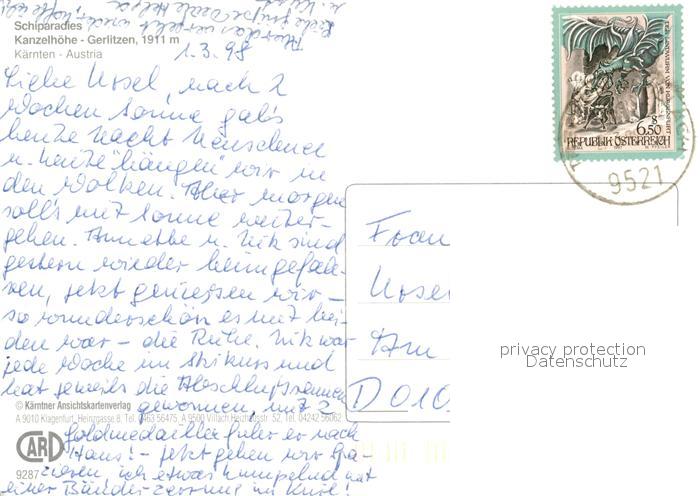 Schiparadies
Kanzelhöhe - Gerlitzen, 1911 m
Kärnten - Austria
1.3.98
Liebe Ursel, nach 2
Wochen Sonne gab's
heute Nacht Neuschnee
u. heute "hängen" wir in
den Wolken. Aber morgen
soll's mit Sonne weiter-
gehen. Annette u. Nik sind
gestern wieder heimgefah-
ren, jetzt geniessen wir –
so wunderschön es mit bei-
den war – die Ruhe. Nik war
jede Woche im Skikurs und
hat jeweils die Abschlußrennen
gewonnen, mit 2
Goldmedaillen fuhr er nach
Haus! – Jetzt gehen wir spa-
zieren, ich etwas humpelnd mit
einer Bänderzerrung im Knie!
© Kärntner Ansichtskartenverlag
A 9010 Klagenfurt, Heinzgasse 8, Tel. 0463 56475, A 9500 Villach, Tel. 04242 56062
CARD
9287
6.50
REPUBLIK ÖSTERREICH
9521
Frau
Ursel
Am
D 010
privacy protection
Datenschutz